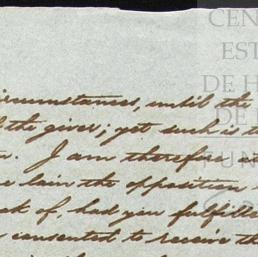 CEN
EST
DE H
DE
UN
circumstances, until the
the giver; yet such is t
I am therefore
lain the opposition
of, had you fulfille
consented to receive th